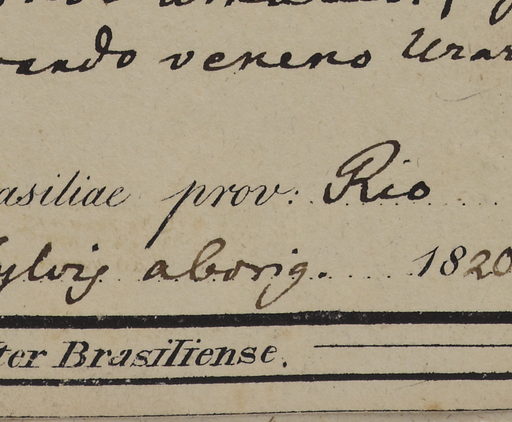 veneno Urar
asiliae prov: Rio
sylvis aborig. 1820
ter Brasiliense.